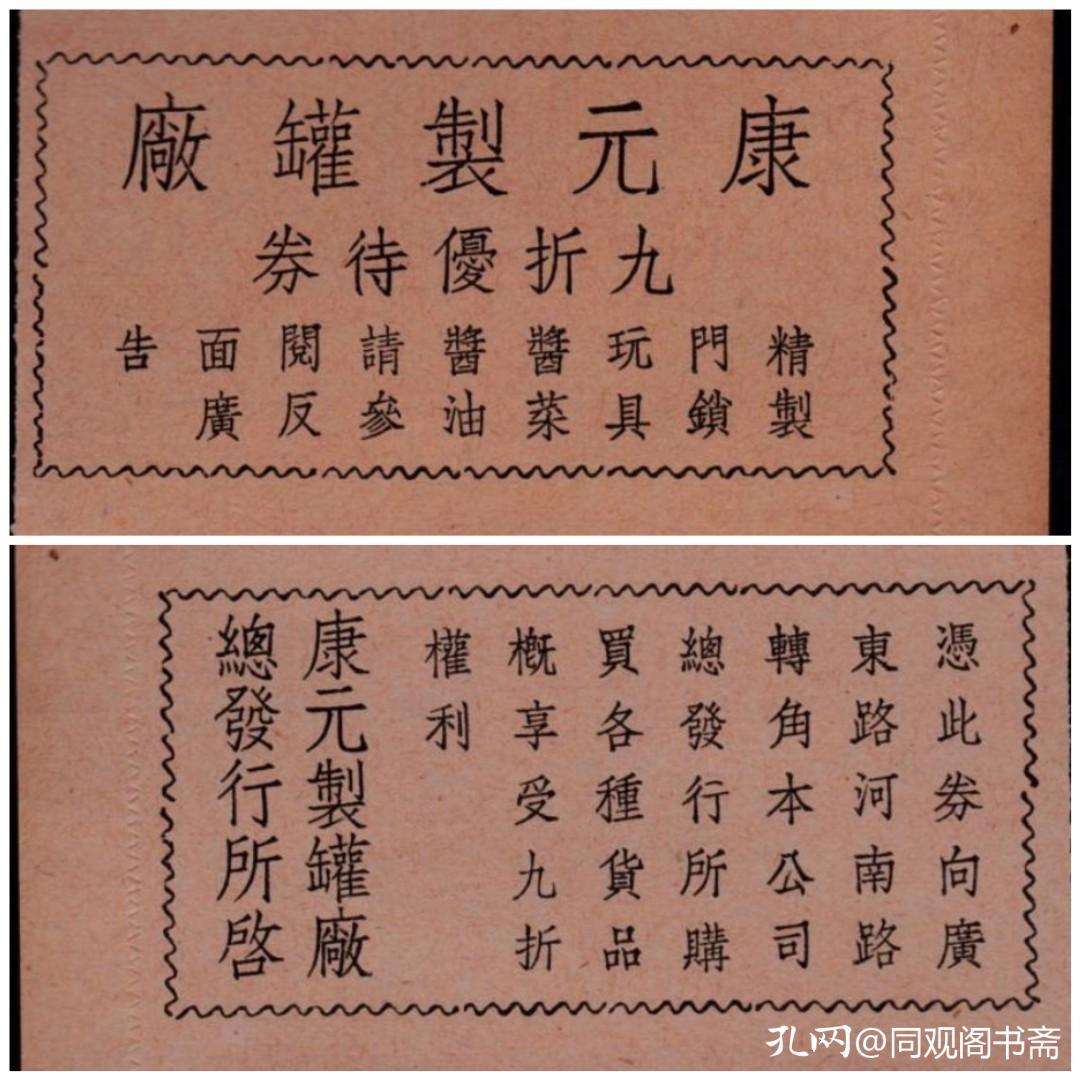 康元製罐廠
九折優待券
精製
門鎖
玩具
醬菜
醬油
請參
閱反
面廣
告
憑此券向廣
東路河南路
轉角本公司
總發行所購
買各種貨品
概享受九折
權利
康元製罐廠
總發行所啓
孔网@同观阁书斋